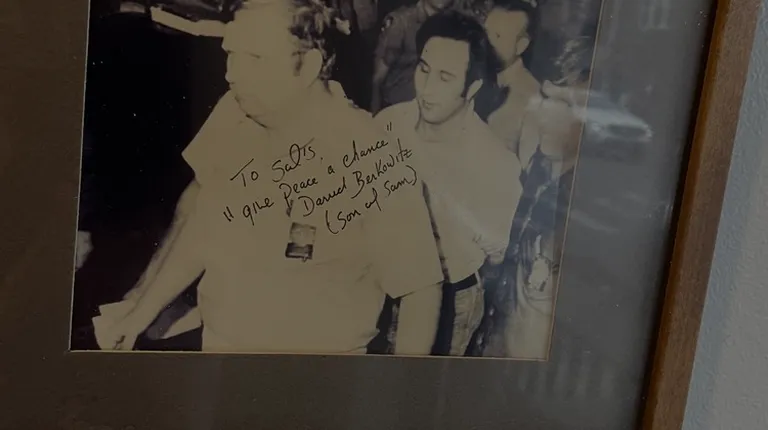 To Sal's,
"give peace a chance"
David Berkowitz
(Son of Sam)